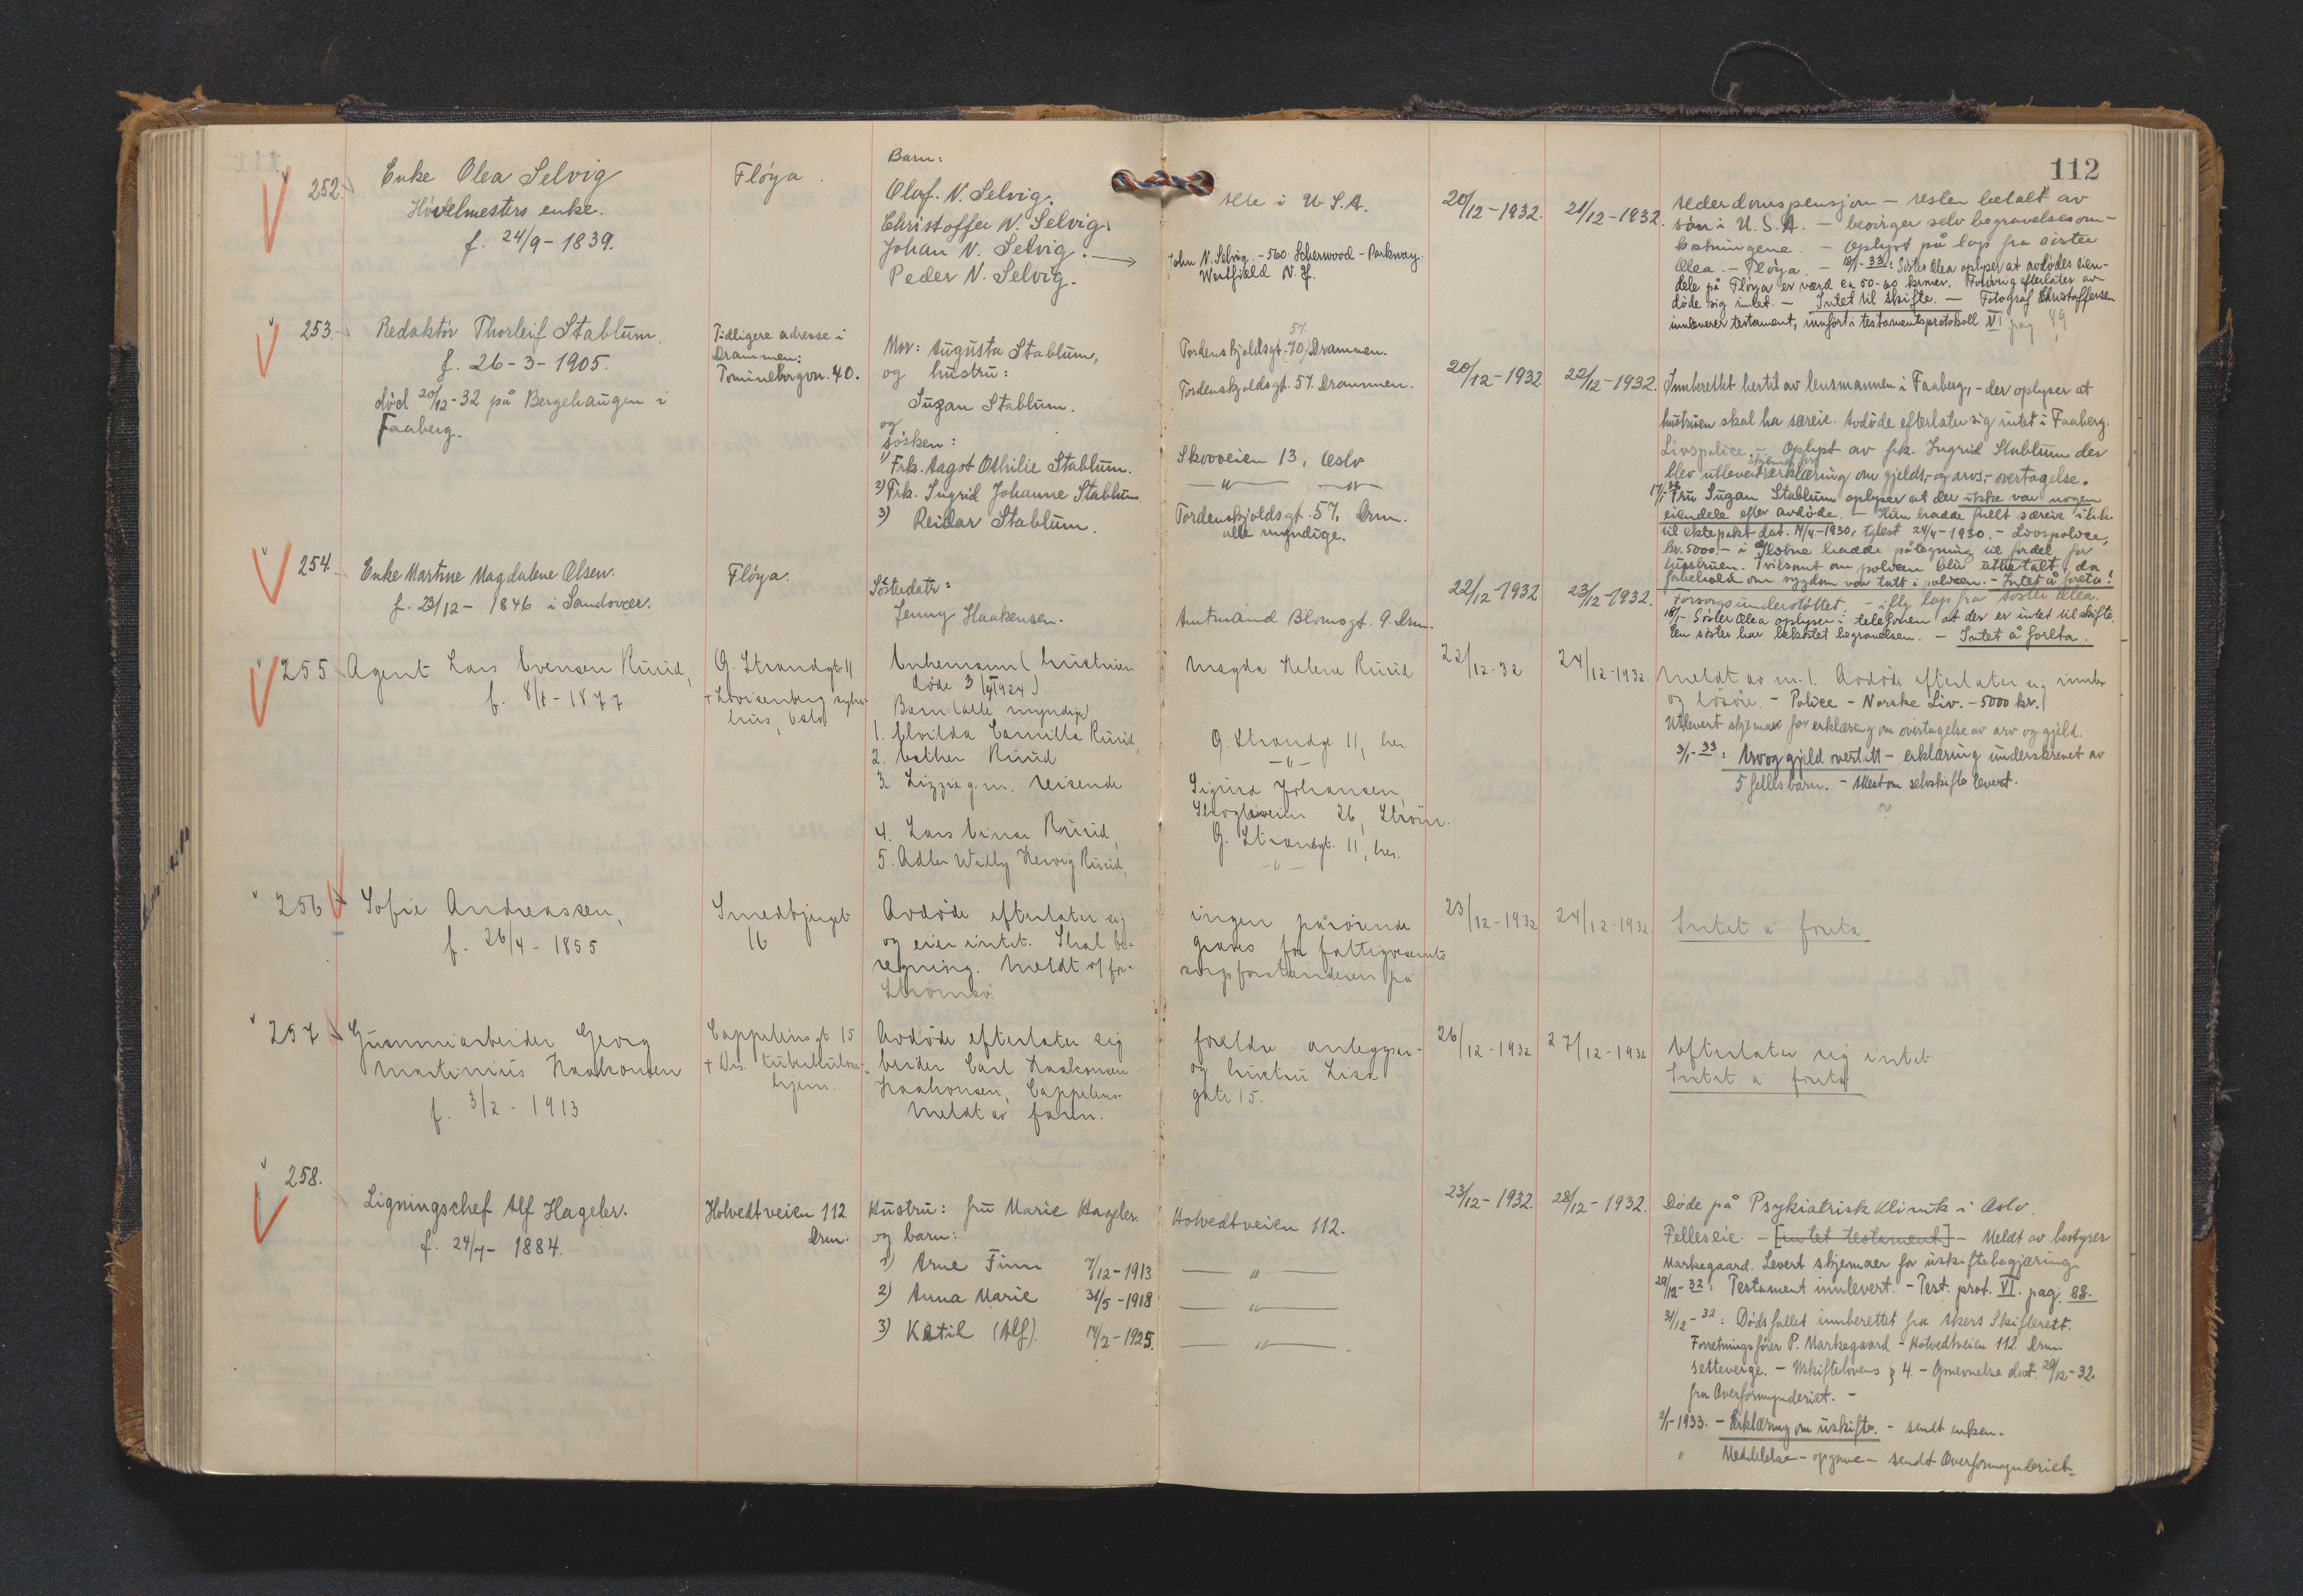 112
252.
Enke Olea Selvig
Høvelmesters enke.
f. 24/9 - 1839.
Fløya.
Barn:
Olaf. N. Selvig.
Christoffer N. Selvig.
Johan N. Selvig. →
Peder N. Selvig.
Alle i U.S.A.
John N. Selvig. - 560. Scherwood - Parkway
Westfield N. J.
20/12 - 1932.
21/12 - 1932.
Alderdomspensjon - resten betalt av
søn i U.S.A. - besørger selv begravelsesom-
kostningene. - Oplyst på lap fra søster
Olea. - Fløya. - 18/1-33: Søster Olea oplyser at avdødes eien-
dele på Fløya er værd ca 50-60 kroner. Forøvrig efterlater av-
døde sig intet. - Intet til skifte. - Fotograf Christoffersen
innleverer testament, innført i testamentsprotokoll VI pag. 89
253.
Redaktør Thorleif Stablum.
f. 26 - 3 - 1905.
død 20/12 - 32 på Bergehaugen i
Faaberg.
Tidligere adresse i
Drammen:
Tomineborgvn. 40.
Mor: Augusta Stablum,
og hustru:
Suzan Stablum.
og
søsken:
1) Frk. Aagot Othilie Stablum.
2) Frk. Ingrid Johanne Stablum
3) Reidar Stablum.
57.
Tordenskjoldsgt. (70) Drammen.
Tordenskjoldsgt. 57. Drammen.
Skovveien 13, Oslo
— " — — " —
Tordenskjoldsgt. 57, Drm.
alle myndige.
20/12 - 1932
22/12 - 1932.
Innberettet hertil av lensmannen i Faaberg, - der oplyser at
hustruen skal ha særeie. Avdøde efterlater sig intet i Faaberg.
Livspolice. Oplyst av frk. Ingrid Stablum der
blev utlevert skjema for erklæring om gjelds- og arvs- overtagelse.
Fru Suzan Stablum oplyser at der ikke var nogen
eiendele efter avdøde. - Hun hadde fullt særeie i h.h.
til ektepakt dat. 14/4 - 1930, tglest 24/4 - 1930. - Livspolice,
kr. 5000.- i Globus hadde påtegning til fordel for
hustruen. Tvilsomt om policen blir utbetalt, da
forbehold om sygdom var tatt i policen. - Intet å foreta!
254.
Enke Martine Magdalene Olsen.
f. 23/12 - 1846 i Sandsvær.
Fløya.
Søsterdatr:
Jenny Haakensen.
Amtmand Blomsgt. 9. Drm.
22/12 - 1932
23/12 - 1932.
Forsorgsunderstøttet: - iflg lap fra søster Olea.
18/1 - Søster Olea oplyser i telefonen at der er intet til skifte.
En søster har bekostet begravelsen. - Intet å foreta.
255
Agent Lars Evensen Ruud,
f. 8/1 - 1877
G. Strandgt 11
+ Lovisenberg syke-
hus, Oslo
Enkemann (hustruen
døde 3/VI 1924).
Barn (alle myndige)
1. Alvilda Camilla Ruud,
2. Esther Ruud
3. Lizzie g.m. reisende
4. Lars Einar Ruud,
5. Adler Willy Herwig Ruud,
Magda Helene Ruud
G. Strandgt 11, her.
— " —
Sigurd Johansen,
26, Strøm.
G. Strandgt. 11, her.
— " —
22/12 - 32
24/12 - 1932.
Meldt av nr. 1. Avdøde efterlater sig innbo
og løsøre. - Police - Norske Liv. - 5000 kr.
Utlevert skjemaer for erklæring om overtagelse av arv og gjeld.
3/1 - 33: Arv og gjeld overtatt - erklæring underskrevet av
5 fellesbarn. - Attest om selvskifte levert.
256
Sofie Andreassen,
f. 26/4 - 1855
Smedbjerget
16
Avdøde efterlater sig ingen pårørende
og eier intet. Skal be- graves for fattigvesenets
regning. Meldt af for- sorgsforstanderen på
Strømsø.
23/12 - 1932
24/12 - 1932.
Intet å foreta
257
Gummiarbeider Georg
Martinius Haakonsen
f. 3/2 - 1913
Cappelensgt 15
+ Drs. tuberkulose-
hjem.
Avdøde efterlater sig foreldre anleggsar-
beider Carl Haakonsen og hustru Lisa
Haakonsen, Cappelens- gate 15.
Meldt av faren.
26/12 - 1932
27/12 - 1932
Efterlater sig intet
Intet å foreta
258.
Ligningschef Alf Hageler.
f. 24/7 - 1884.
Hotvedtveien 112
Drm.
Hustru: fru Marie Hageler.
og barn:
1) Arne Finn 7/12 - 1913
2) Anna Marie 31/5 - 1918
3) Ketil (Alf). 14/2 - 1925.
Hotvedtveien 112.
— " —
— " —
— " —
23/12 - 1932.
28/12 - 1932.
Døde på Psykiatrisk Klinik i Oslo.
Felleseie. - [intet testament] - Meldt av bestyrer
Markegaard. Levert skjemaer for uskiftebegjæring.
29/12 - 32: Testament innlevert. - Test. prot. VI. pag. 88.
31/12 - 32: Dødsfallet innberettet fra Akers Skifterett.
Forretningsfører P. Markegaard - Hotvedtveien 112. Drm
setteverge. - Uskiftelovens § 4. - Opnevnelse dat. 29/12 - 32.
fra Overformynderiet. -
2/1 - 1933. - Erklæring om uskifte. - sendt enken.
" Meddelelse - opgave - sendt Overformynderiet.